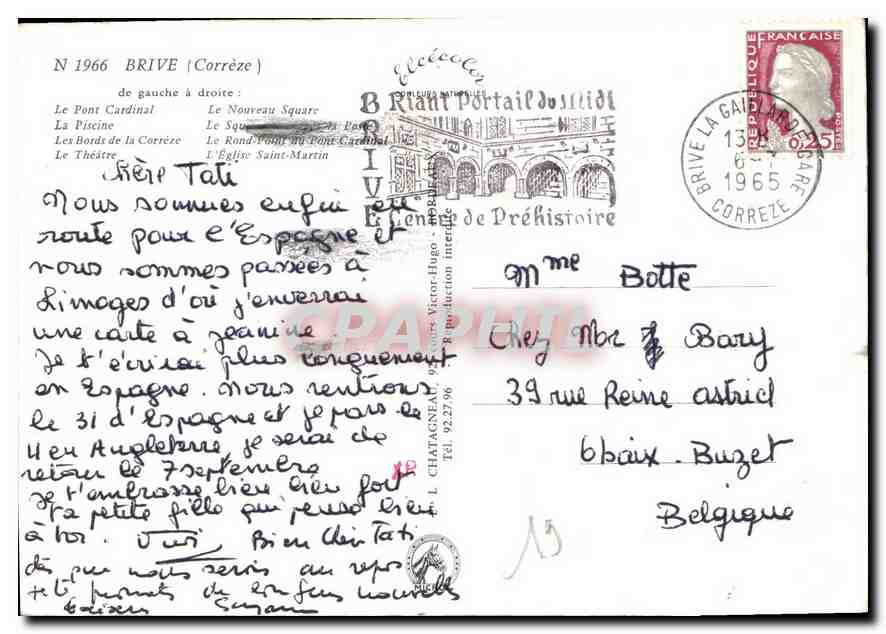 N 1966 BRIVE (Corrèze)
de gauche à droite :
Le Pont Cardinal Le Nouveau Square
La Piscine Le Squ la Poste
Les Bords de la Corrèze Le Rond-Point du Pont Cardinal
Le Théâtre L'Église Saint-Martin
Elcécolor
COULEURS NATURELLES
BRIVE
Riant Portail du Midi
Centre de Préhistoire
BRIVE LA GAILLARDE GARE
13 H
6 - 7
1965
CORREZE
REPUBLIQUE FRANÇAISE
0,25
POSTES
Chère Tati
Nous sommes enfin en
route pour l'Espagne et
nous sommes passées à
Limoges d'où j'enverrai
une carte à Jeanine.
Je t'écrirai plus longuement
en Espagne. Nous rentrons
le 31 d'Espagne et je pars le
4 en Angleterre je serai de
retour le 7 septembre
Je t'embrasse bien bien fort
Ta petite fille qui pense bien
à toi. Bien Chère Tati
dès que nous serons au repos
je te promets de longues nouvelles
baisers
L CHATAGNEAU, 92 Cours Victor-Hugo - BORDEAUX
Tél. 92.27.96 Reproduction interdite
CPAPHIL
Mme Botte
Chez Mr Bary
39 rue Reine Astrid
6baix-Buzet
Belgique
19